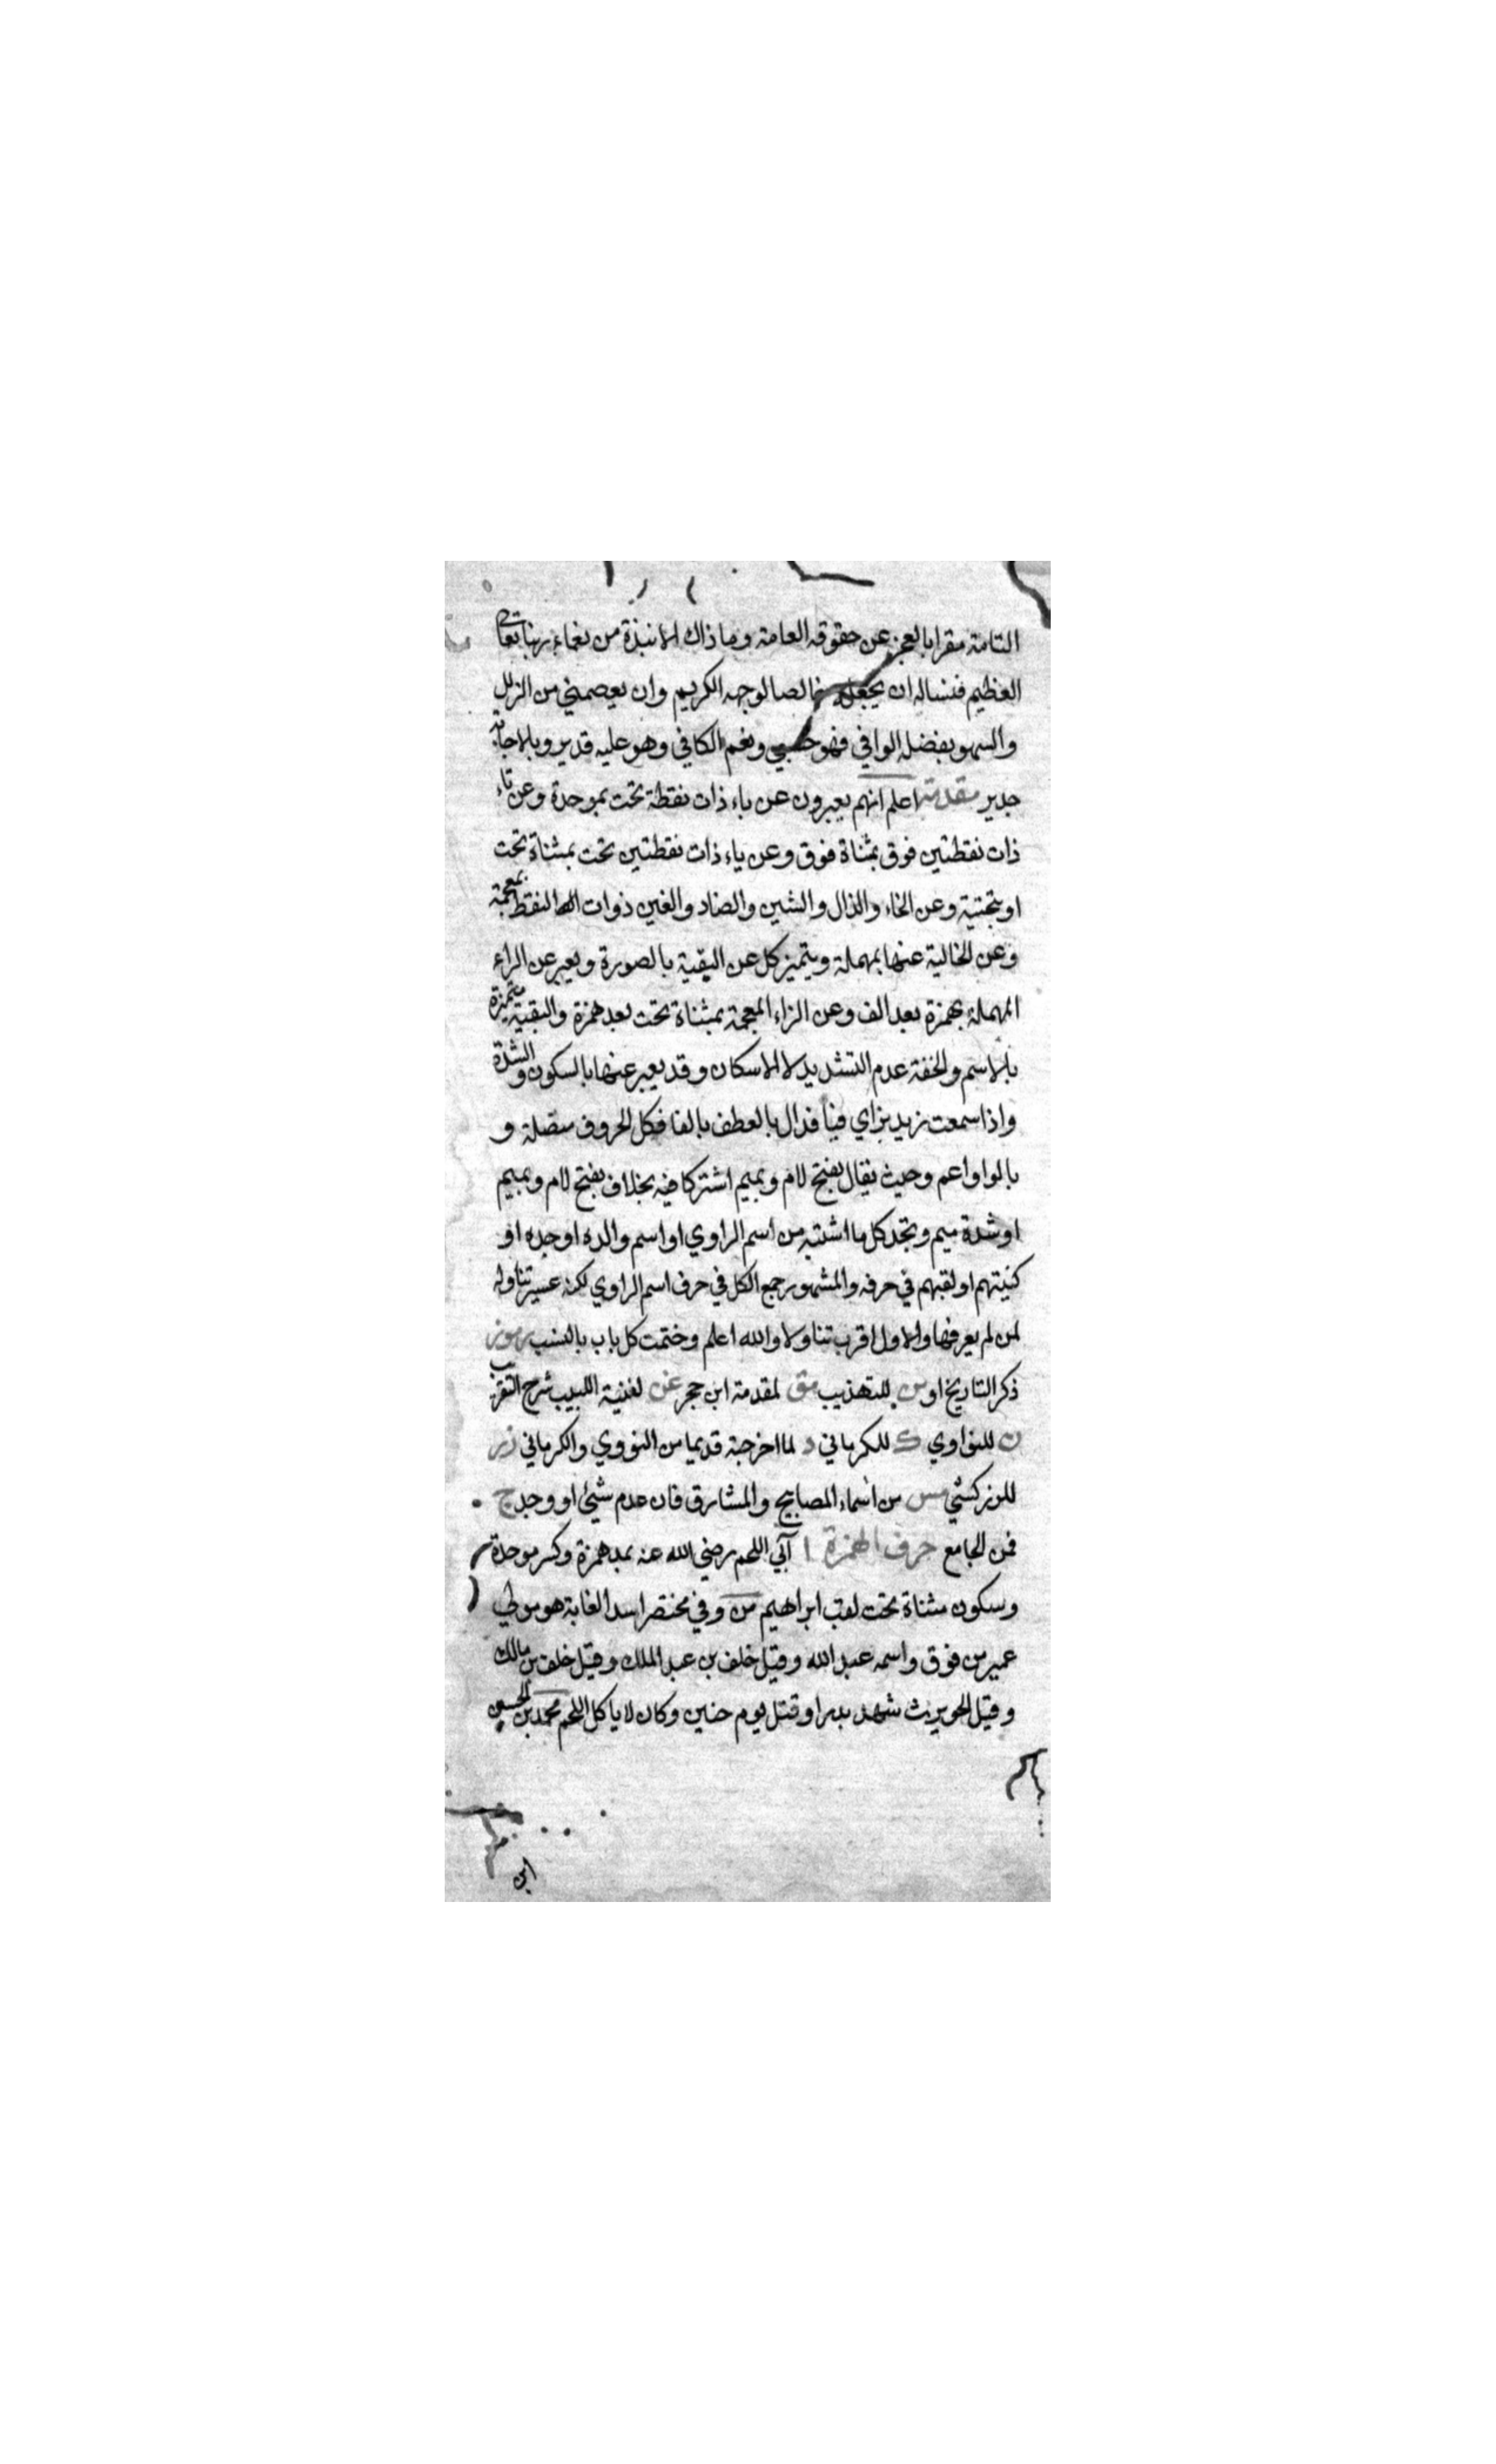 التامة مقرا بالعجز عن حقوقه العامة وما ذاك الا نبذة من نعماء ربنا تعالى
العظيم فنساله ان يجعله خالصا لوجهه الكريم وان يعصمني من الزلل
والسهو بفضله الوافي فهو حسبي ونعم الكافي وهو عليه قدير وبالاجابة
جدير مقدمة اعلم انهم يعبرون عن باء ذات نقطة تحت بموحدة وعن تاء
ذات نقطتين فوق بمثناة فوق وعن ياء ذات نقطتين تحت بمثناة تحت
او بتحتية وعن الخاء والذال والشين والضاد والغين ذوات النقط بمعجمة
وعن الخالية عنها بمهملة ويتميز كل عن البقية بالصورة ويعبر عن الراء
المهملة بهمزة بعد الف وعن الزاء المعجمة بمثناة تحت بعد همزة والبقية متميزة
بالاسم والخفة عدم التشديد لا الاسكان وقد يعبر عنها بالسكون والشدة
واذا سمعت زيد بزاي فيا فدال بالعطف بالفا فكل الحروف متصلة و
بالواو اعم وحيث يقال بفتح لام وبميم اشتركا فيه بخلاف بفتح لام وبميم
او شدة ميم وتجد كل ما اشتبه من اسم الراوي او اسم والده او جده او
كنيتهم او لقبهم في حرفه والمشهور جمع الكل في حرف اسم الراوي لكنه عسير تناوله
لمن لم يعرفها والاول اقرب تناولا والله اعلم وختمت كل باب بالنسب رموز
ذكر التاريخ او للتهذيب مق لمقدمة ابن حجر غن لغنية اللبيب شرح التقريب
ن للنواوي ك للكرماني د لما اخرجته قديما من النووي والكرماني زر
للزركشي مس من اسماء المصابيح والمشارق فان عدم شيئ او وجد ج
فمن الجامع حرف الهمزة ا آبي اللحم رضي الله عنه بمد همزة وكسر موحدة
وسكون مثناة تحت لقب ابراهيم من وفي مختصر اسد الغابة هو مولي
عمير من فوق واسمه عبد الله وقيل خلف بن عبد الملك وقيل خلف بن مالك
وقيل الحويرث شهد بدرا وقتل يوم حنين وكان لا ياكل اللحم محمد بن الحسين
ابن